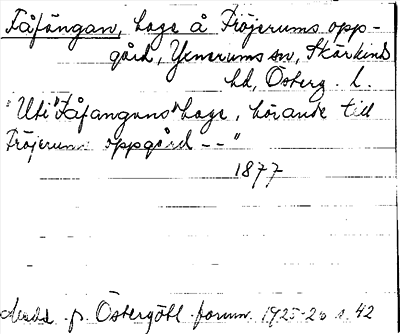 Fåfängan, hage å Fröjerums opp-
gård, Yxnerums sn, Skärkinds
hd, Österg. L.
"Uti "Fåfängans" hage, hörande till
Fröjerums oppgård -- "
1877
Medd. fr. Östergötl. fornm. 1925-26 s. 42